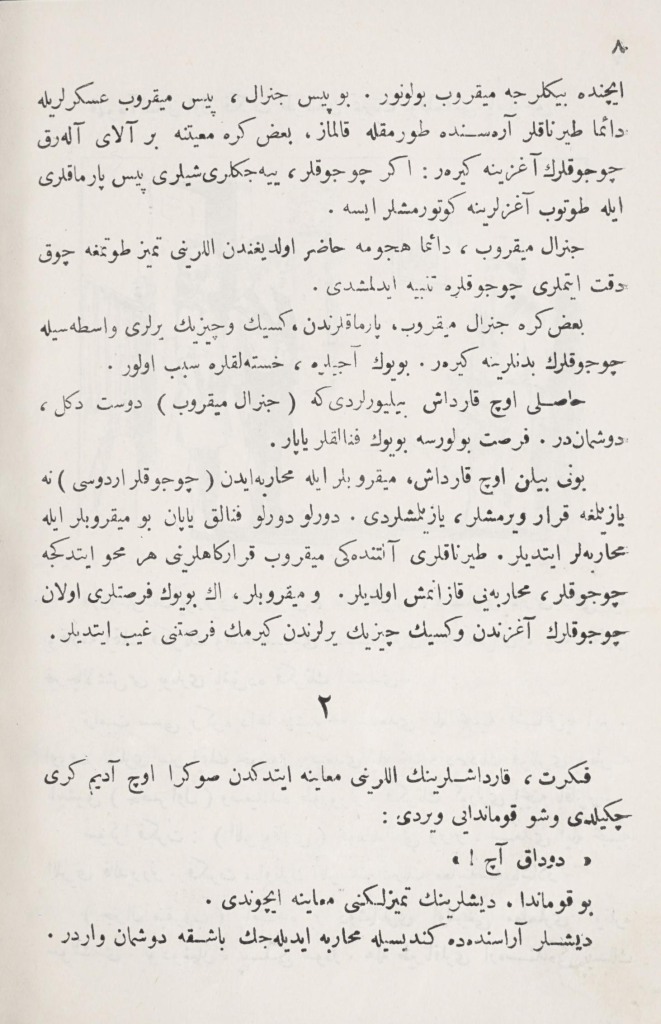 ٨
ایچنده بیكلرجه میقروب بولونور . بو پیس جنرال ، پیس میقروب عسكرلریله
دائما طیرناقلر آره‌سنده طورمقله قالماز، بعض كره معیتنه بر آلای آله‌رق
چوجوقلرك آغزینه كیره‌ر : اكر چوجوقلر، ییه‌جكلری شیلری پیس پارماقلری
ایله طوتوب آغزلرینه كوتورمشلر ایسه .
جنرال میقروب ، دائما هجومه حاضر اولدیغندن اللرینی تمیز طوتمغه چوق
دقت ایتملری چوجوقلره تنبیه ایدلمشدی .
بعض كره جنرال میقروب، پارماقلرندن، كسیك وچیزیك یرلری واسطه‌سیله
چوجوقلرك بدنلرینه كیره‌ر . بویوك آجیلره ، خسته‌لقلره سبب اولور .
حاصلی اوچ قارداش بیلیورلردی كه ( جنرال میقروب ) دوست دكل ،
دوشمان‌در . فرصت بولورسه بویوك فنالقلر یاپار .
بونی بیلن اوچ قارداش، میقروبلر ایله محاربه‌ایدن ( چوجوقلر اردوسی ) نه
یازیلمغه قرار ویرمشلر، یازیلمشلردی . دورلو دورلو فنالق یاپان بو میقروبلر ایله
محاربه‌لر ایتدیلر . طیرناقلری آلتنده‌كی میقروب قراركاهلرینی هر محو ایتدكجه
چوجوقلر، محاربه‌یی قازانمش اولدیلر. و میقروبلر، اك بویوك فرصتلری اولان
چوجوقلرك آغزندن وكسیك چیزیك یرلرندن كیرمك فرصتنی غیب ایتدیلر.
٢
فكرت ، قارداشلرینك اللرینی معاینه ایتدكدن صوكرا اوچ آدیم كری
چكیلدی وشو قوماندایی ویردی :
« دوداق آچ ! »
بو قوماندا، دیشلرینك تمیزلكنی معاینه ایچوندی .
دیشلر آراسنده‌ده كندیسیله محاربه ایدیله‌جك باشقه دوشمان واردر .